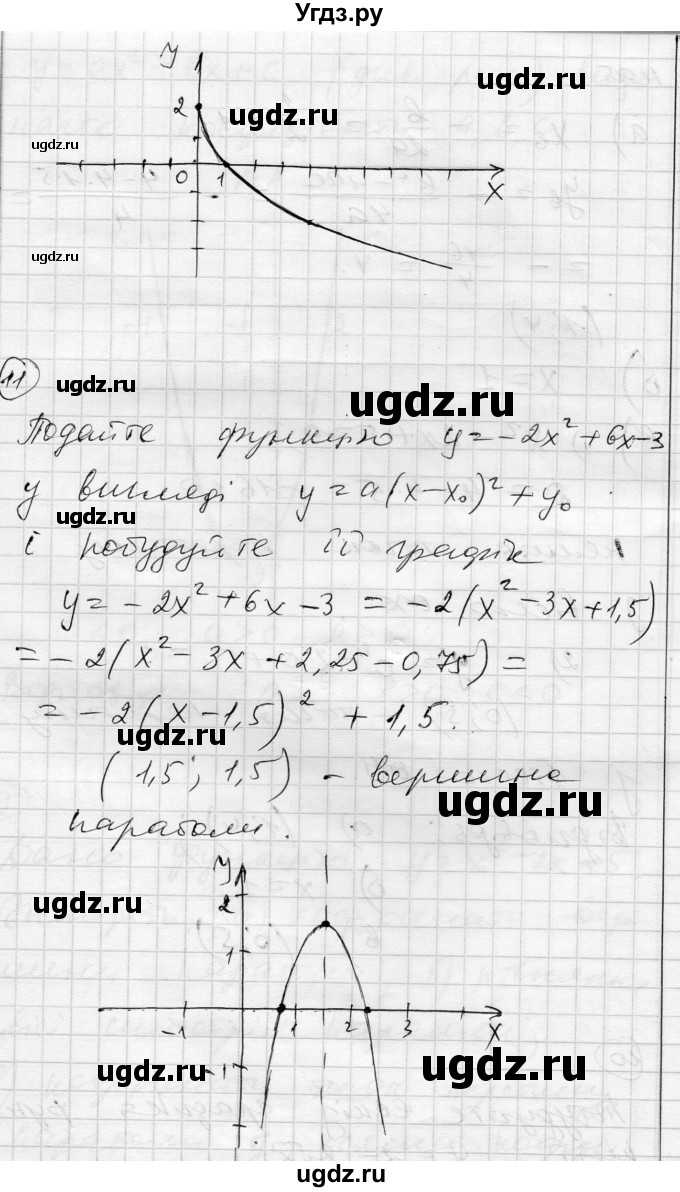 Угдз.ру
y
2
ugdz.ru
ugdz.ru
ugdz.ru
0 1 x
ugdz.ru
11 ugdz.ru ugdz.ru
Подайте функцію y = -2x² + 6x - 3
у вигляді y = a(x - x₀)² + y₀
ugdz.ru
і побудуйте її графік
y = -2x² + 6x - 3 = -2(x² - 3x + 1,5)
= -2(x² - 3x + 2,25 - 0,75) =
= -2(x - 1,5)² + 1,5.
ugdz.ru
(1,5; 1,5) - вершина
ugdz.ru
параболи.
y
2
ugdz.ru
1
-1 1 2 3 x
ugdz.ru -1 ugdz.ru
ugdz.ru